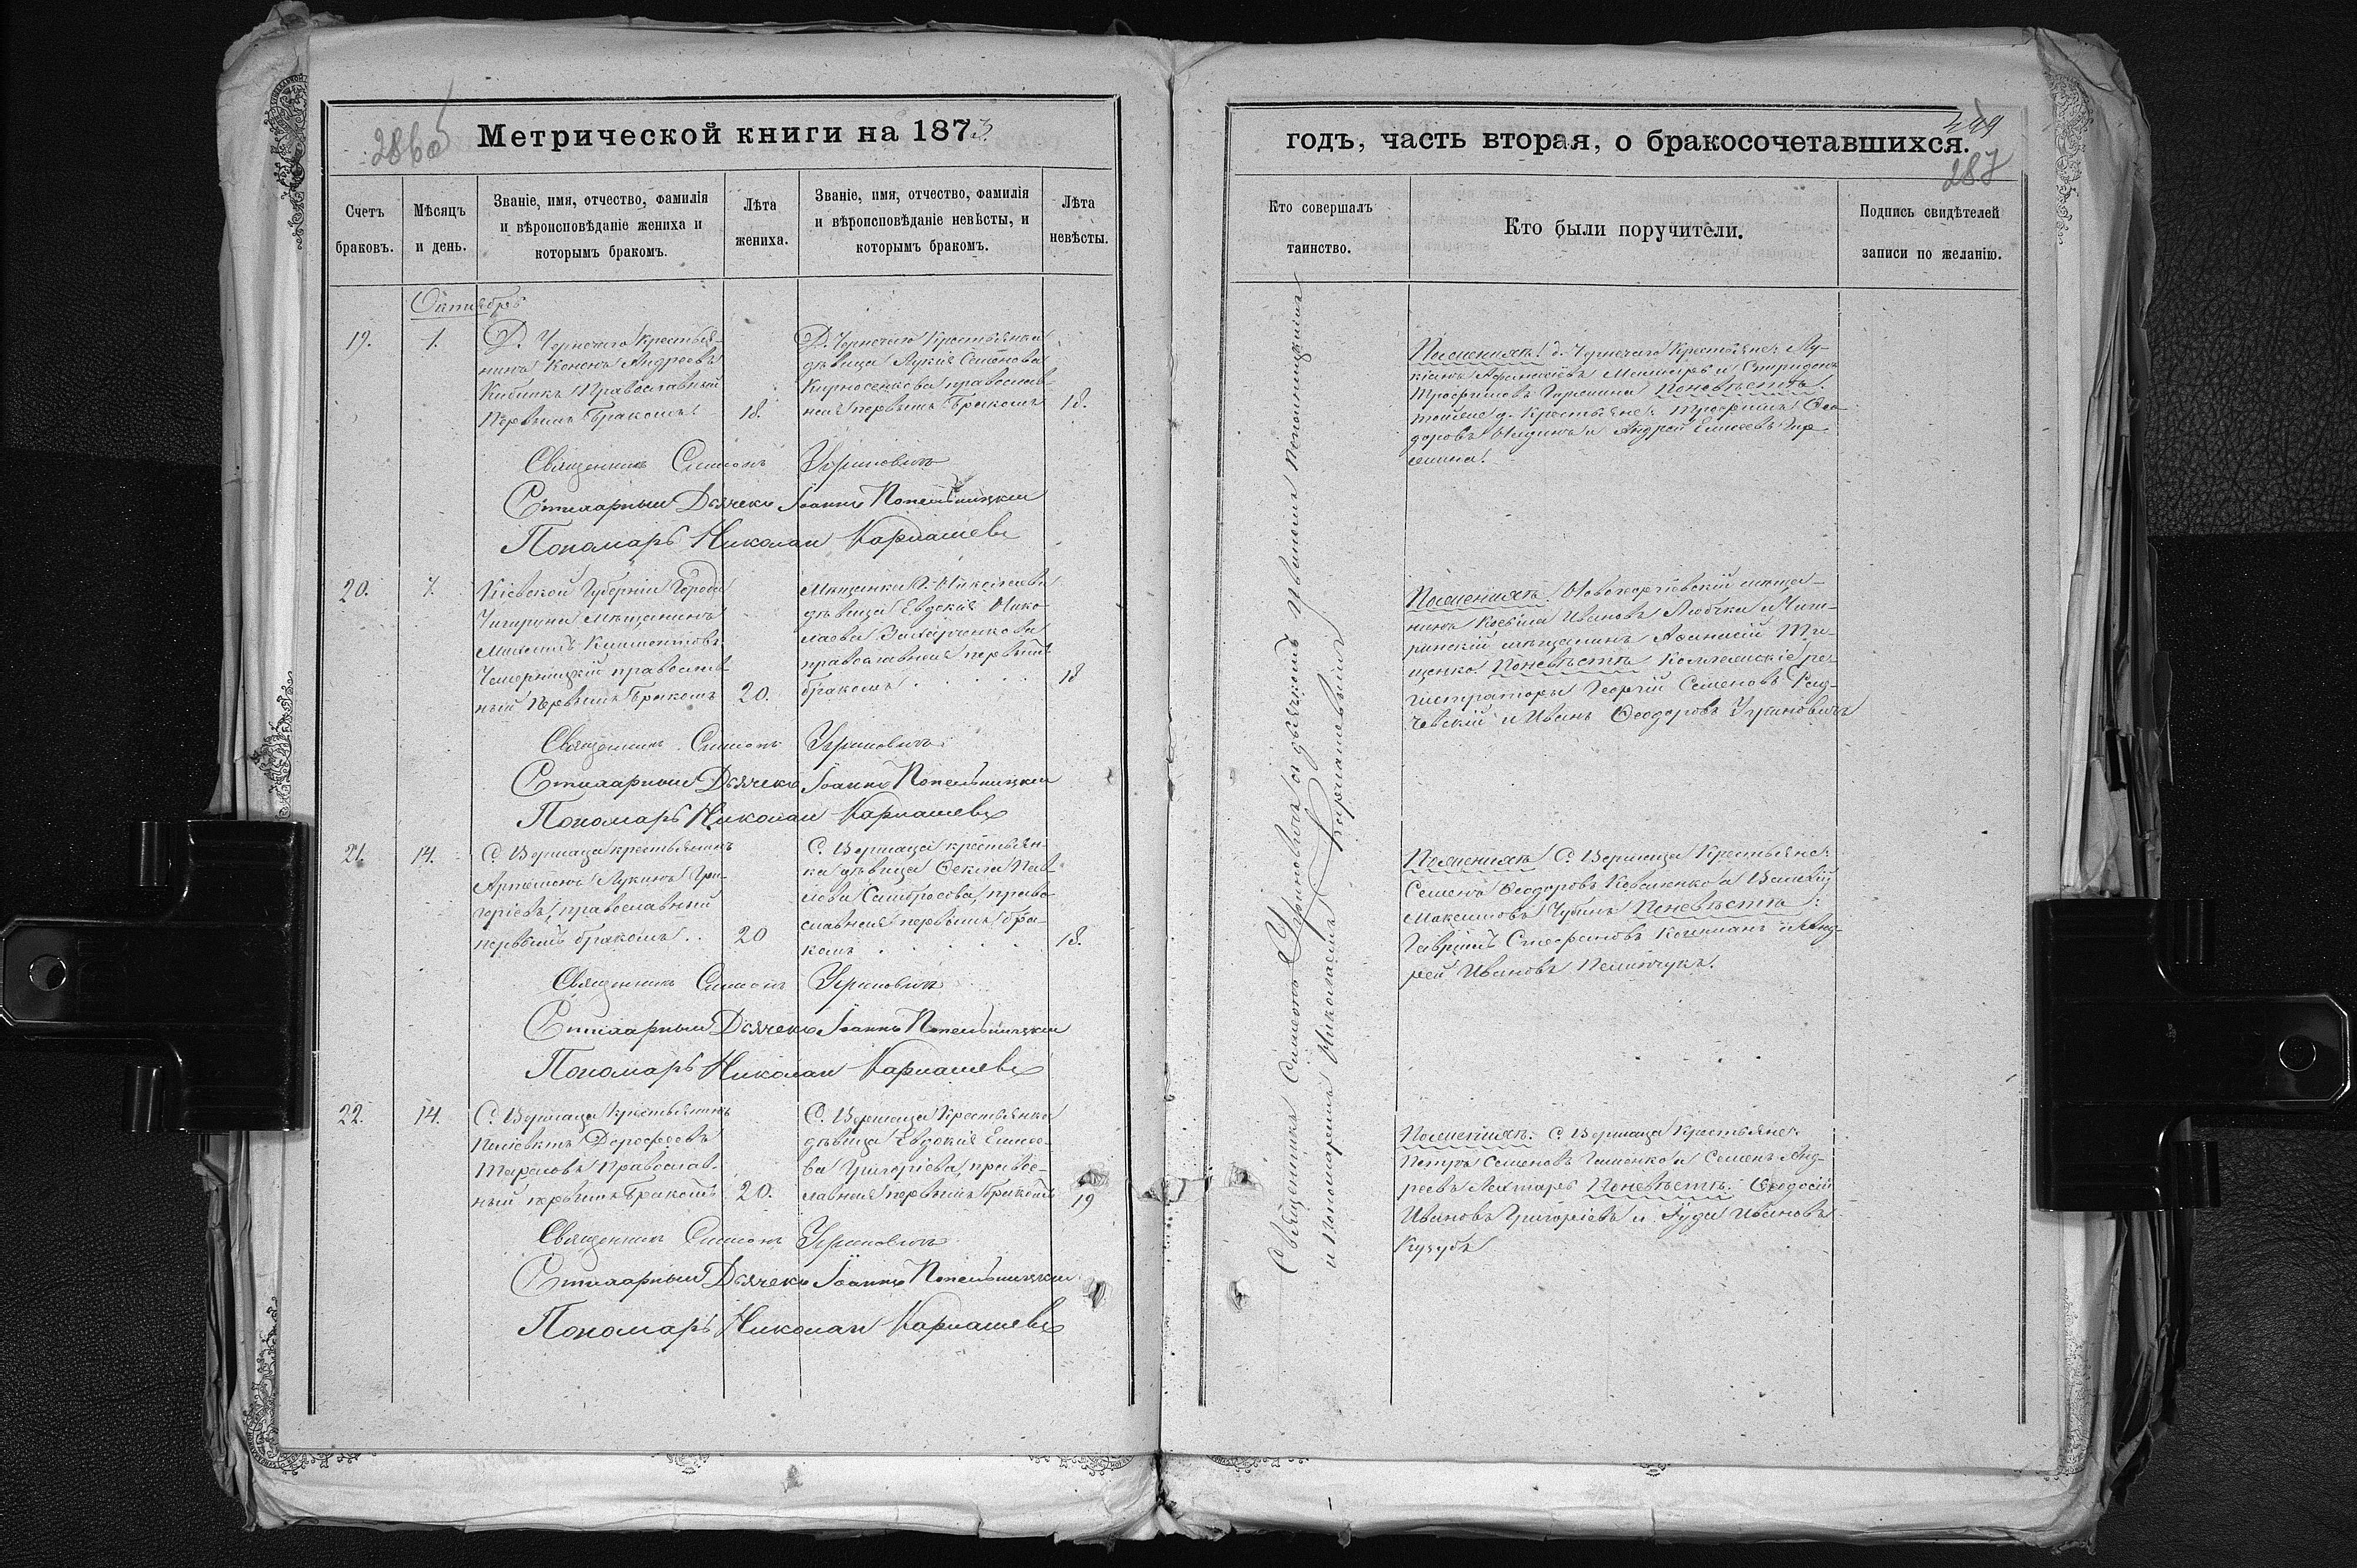 286об
Метрической книги на 1873
Счетъ браковъ.
Мѣсяцъ и день.
Званіе, имя, отчество, фамилія и вѣроисповѣданіе жениха и которымъ бракомъ.
Лѣта жениха.
Званіе, имя, отчество, фамилія и вѣроисповѣданіе невѣсты, и которымъ бракомъ.
Лѣта невѣсты.
Октябрь
19.
1.
Д. Чернечаго крестья-
нинъ Кононъ Андреевъ
Православный
Первымъ Бракомъ
18.
Д. Чернечаго Крестьянка
дѣвица Лукія Семенова
православ-
ная первымъ Бракомъ
18.
Священникъ Симеонъ Угриновичъ
Стихарный Дьячекъ Іоаннъ Попельницкій
Пономарь Николай Карпашевъ
20.
7.
Кіевской Губерніи Города
Чигирина мѣщанинъ
Михаилъ
православ-
ный первымъ Бракомъ
20.
Мѣщанка Г. Николаева
дѣвица Евдокія Нико-
лаева Захарченкова
православная первымъ
бракомъ
18
Священникъ Симеонъ Угриновичъ
Стихарный Дьячекъ Іоаннъ Попельницкій
Пономарь Николай Карпашевъ
21.
14.
С. Вершаца крестьянинъ
Артемонъ Лукинъ Гри-
горіевъ, православный
первымъ бракомъ
20
С. Вершаца крестьян-
ка дѣвица Ѳекла Пав-
лова право-
славная первымъ бра-
комъ
18.
Священникъ Симеонъ Угриновичъ
Стихарный Дьячекъ Іоаннъ Попельницкій
Пономарь Николай Карпашевъ
22.
14.
С. Вершаца Крестьянинъ
Поліевктъ Дорофеевъ
Тарасовъ Православ-
ный первымъ Бракомъ
20.
С. Вершаца Крестьянка
дѣвица Евдокія Елисее-
ва Григоріева, правос-
лавная первымъ бракомъ
19
Священникъ Симеонъ Угриновичъ
Стихарный Дьячекъ Іоаннъ Попельницкій
Пономарь Николай Карпашевъ
годъ, часть вторая, о бракосочетавшихся.
287
Кто совершалъ таинство.
Кто были поручители.
Подпись свидѣтелей записи по желанію.
Священникъ Симеонъ Угриновичъ съ дьячкомъ Іоанномъ Попельницкимъ
и пономаремъ Николаемъ Карпашевымъ
По женихѣ: д. Чернечаго Крестьяне: Лу-
кіанъ и Спиридонъ
Трофимовъ По невѣстѣ:
Крестьяне: Трофимъ Ѳео-
доровъ и Андрей Елисеевъ
По женихѣ: Новогеоргіевскій мѣща-
нинъ Косьма Ивановъ и Чиги-
ринскій мѣщанинъ Аѳанасій Ти-
щенко. По невѣстѣ: Коллежскіе ре-
гистраторы Георгій Семеновъ
и Иванъ Ѳеодоровъ Угриновичъ
По женихѣ С. Вершаца Крестьяне:
Семенъ Ѳеодоровъ Коваленко и Василій
Максимовъ По невѣстѣ:
Гавріилъ Стефановъ и Анд-
рей Ивановъ Пелипчукъ.
По женихѣ: С. Вершаца Крестьяне:
Петръ Семеновъ и Семенъ Анд-
реевъ По невѣстѣ: Ѳеодосій
Ивановъ Григоріевъ и Іуда Ивановъ